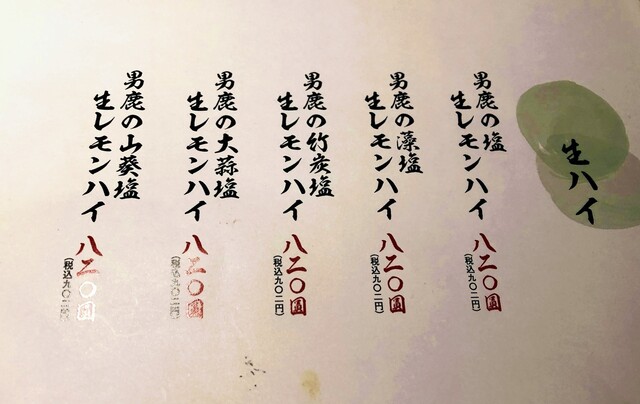 生ハイ
男鹿の塩
生レモンハイ 八二〇圓
(税込九〇二円)
男鹿の藻塩
生レモンハイ 八二〇圓
(税込九〇二円)
男鹿の竹炭塩
生レモンハイ 八二〇圓
(税込九〇二円)
男鹿の大蒜塩
生レモンハイ 八二〇圓
(税込九〇二円)
男鹿の山葵塩
生レモンハイ 八二〇圓
(税込九〇二円)